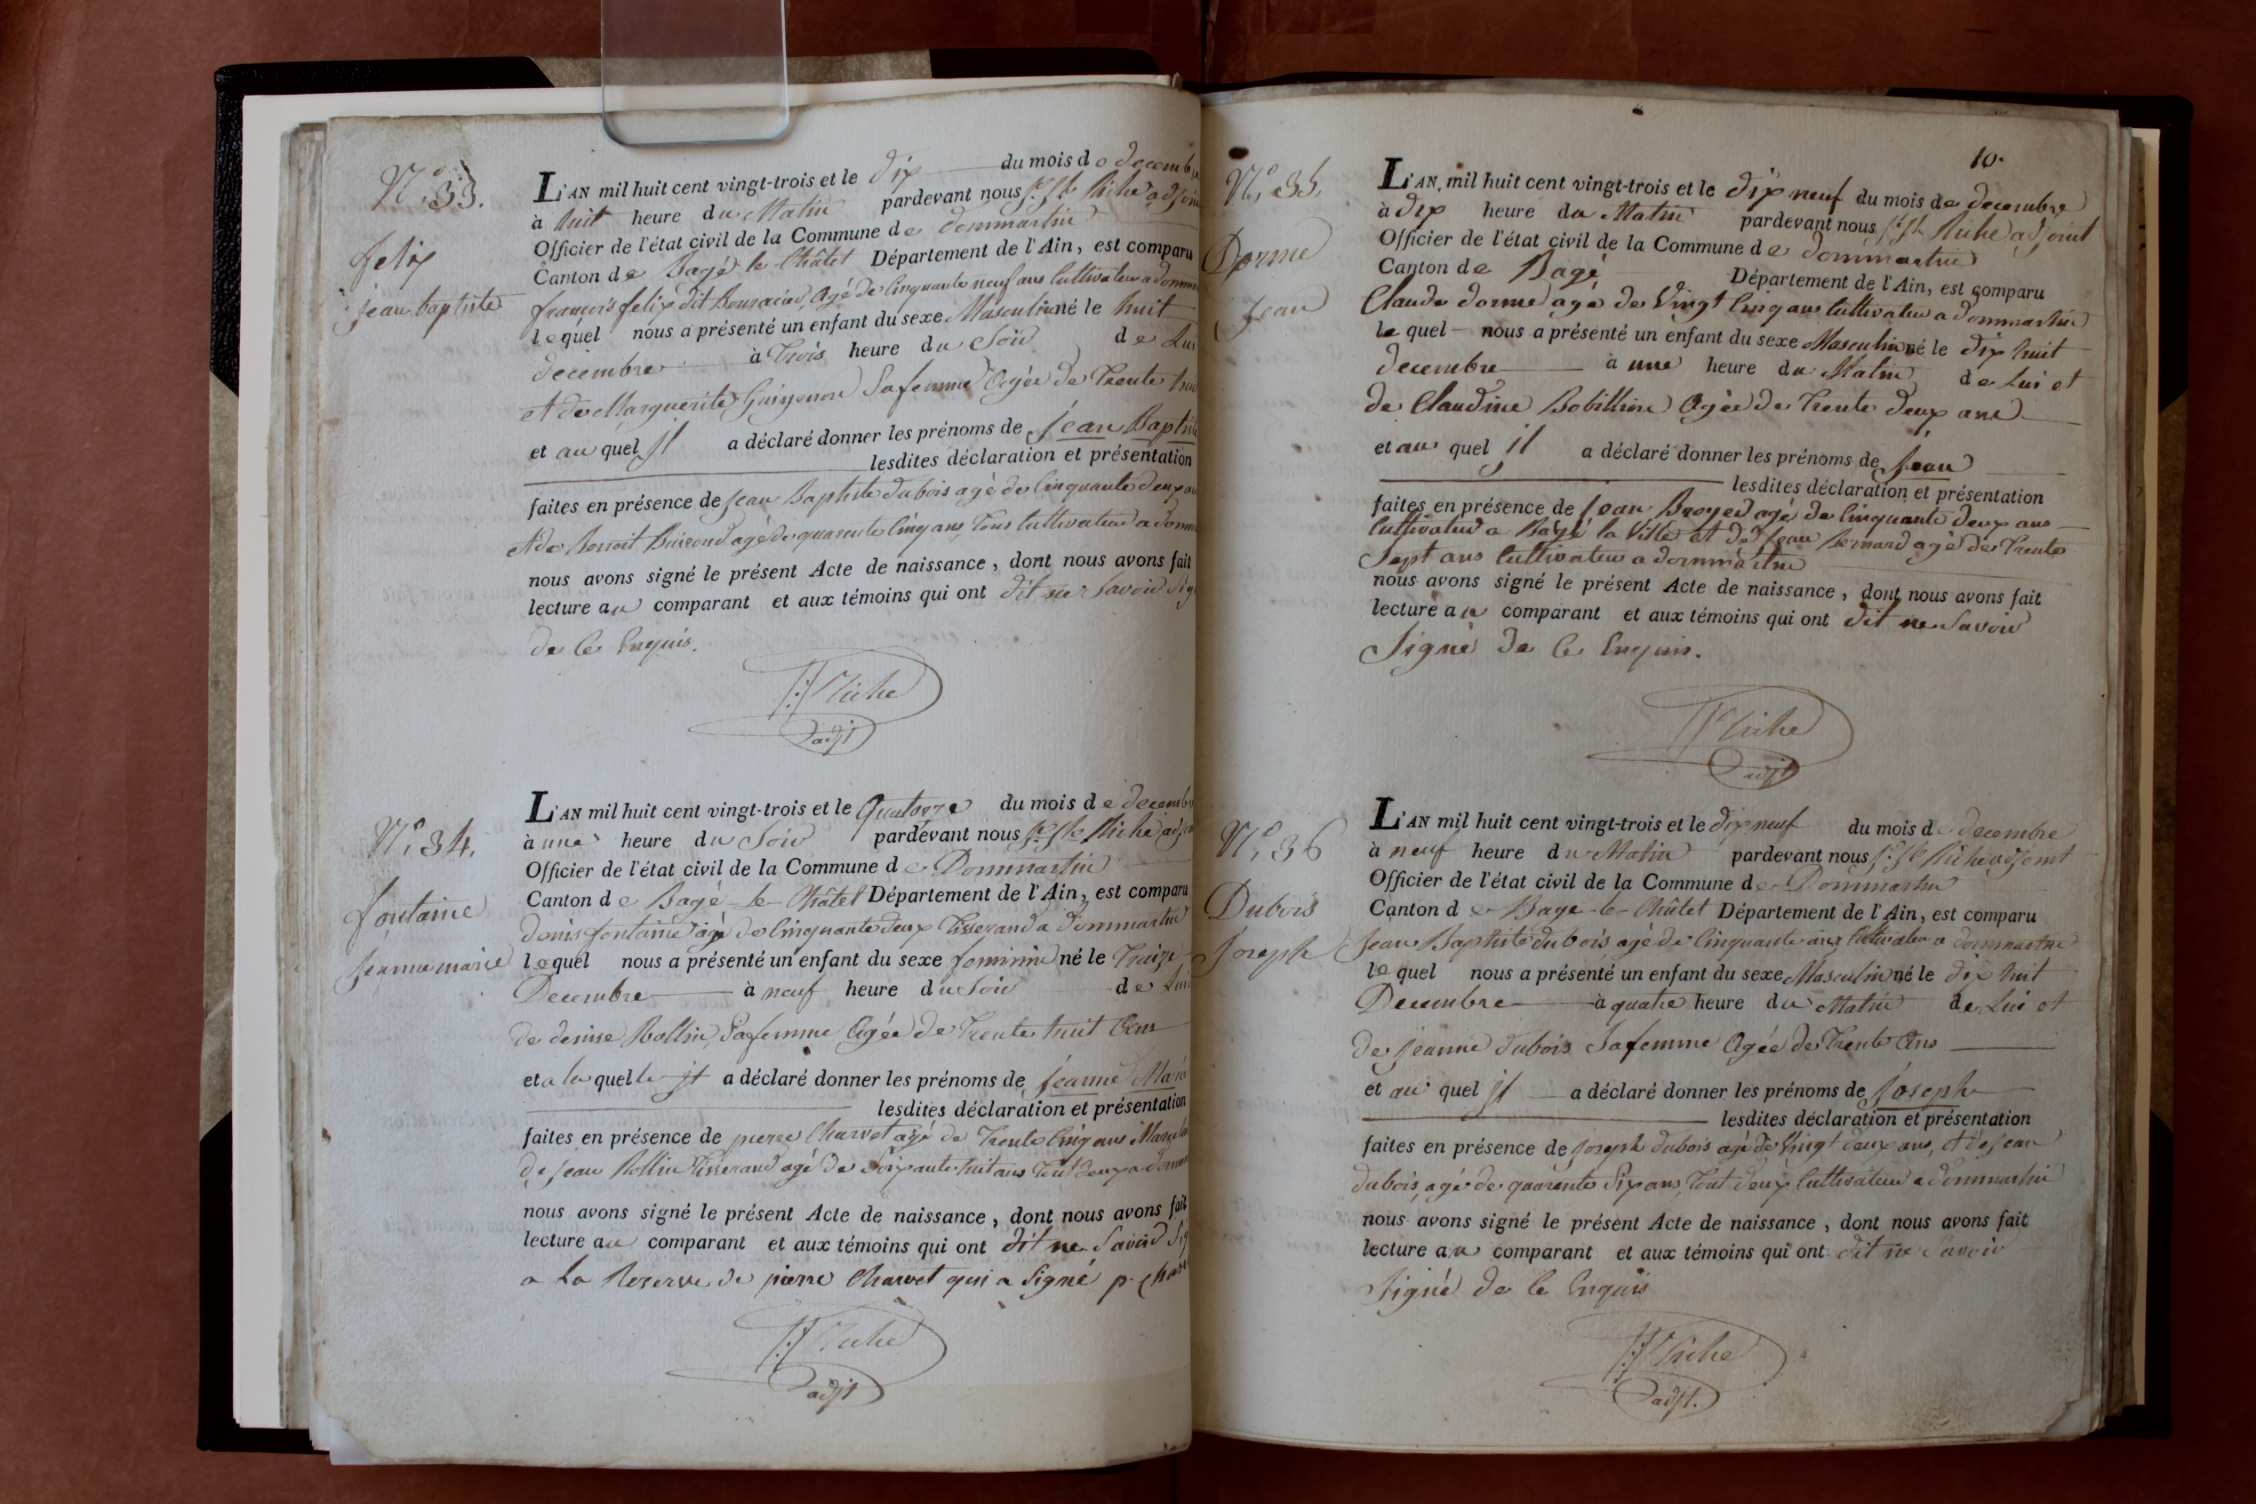 N.° 33.
felix
jean baptiste
L'AN mil huit cent vingt-trois et le dix du mois de decembre
à huit heure du Matin pardevant nous Riche adjoint
Officier de l'état civil de la Commune de dommartin
Canton de Bagé le Châtel Département de l'Ain, est comparu
françois felix dit agé de Cinquante neuf ans Cultivateur a
lequel nous a présenté un enfant du sexe Masculin né le huit
decembre à Trois heure du Soir de Lui
et de Marguerite Guigonon Safemme Agée de Trente
et au quel jl a déclaré donner les prénoms de Jean Baptiste
lesdites déclaration et présentation
faites en présence de Jean Baptiste dubois agé de Cinquante deux
et de Benoit agé de quarente Cinq ans, Tous Cultivateur a
nous avons signé le présent Acte de naissance, dont nous avons fait
lecture au comparant et aux témoins qui ont dit ne Savoir
de Ce Enquis.
Riche
adjt
N.° 34.
fontaine
jeanne marie
L'AN mil huit cent vingt-trois et le Quatorze du mois de decembre
à une heure du Soir pardevant nous Riche
Officier de l'état civil de la Commune de Dommartin
Canton de Bagé-le-Châtel Département de l'Ain, est comparu
denis fontaine agé de Cinquante deux Tisserand a dommartin
lequel nous a présenté un enfant du sexe feminin né le Traize
Decembre à neuf heure du Soir de Lui
de denise Rollin, Safemme Agée de Trente huit Ans
et a la quelle jl a déclaré donner les prénoms de Jeanne Marie
lesdites déclaration et présentation
faites en présence de pierre Charvet agé de Trente Cinq ans
de jean Rollin Tisserand agé de Soixante huit ans Tout deux a
nous avons signé le présent Acte de naissance, dont nous avons fait
lecture au comparant et aux témoins qui ont dit ne Savoir
a La Reserve de pierre Charvet qui a Signé p.
Riche
adjt
10.
N.° 35
Dorme
Jean
L'AN mil huit cent vingt-trois et le dix neuf du mois de decembre
à dix heure du Matin pardevant nous Riche adjoint
Officier de l'état civil de la Commune de dommartin
Canton de Bagé Département de l'Ain, est comparu
Claude dorme agé de Vingt Cinq ans Cultivateur a dommartin
le quel nous a présenté un enfant du sexe Masculin né le dix huit
decembre à une heure du Matin de Lui et
de Claudine Bobillion Agée de Trente deux ans
et au quel jl a déclaré donner les prénoms de Jean
lesdites déclaration et présentation
faites en présence de Jean Broyer agé de Cinquante deux ans
Cultivateur a Bagé la Ville et de Jean Bernard agé de Trente
Sept ans Cultivateur a dommartin
nous avons signé le présent Acte de naissance, dont nous avons fait
lecture au comparant et aux témoins qui ont dit ne Savoir
Signé de Ce Enquis.
Riche
adjt
N.° 36
Dubois
Joseph
L'AN mil huit cent vingt-trois et le dix neuf du mois de decembre
à neuf heure du Matin pardevant nous Riche adjoint
Officier de l'état civil de la Commune de Dommartin
Canton de Bage-le-Châtel Département de l'Ain, est comparu
Jean Baptiste dubois, agé de Cinquante ans Cultivateur a dommartin
lequel nous a présenté un enfant du sexe Masculin né le dix huit
Decembre à quatre heure du Matin de Lui et
de Jeanne dubois Safemme Agée de Trente Ans
et au quel jl a déclaré donner les prénoms de Joseph
lesdites déclaration et présentation
faites en présence de Joseph dubois agé de Vingt deux ans, et de Jean
dubois, agé de quarente Six ans, Tout deux Cultivateur a dommartin
nous avons signé le présent Acte de naissance, dont nous avons fait
lecture au comparant et aux témoins qui ont dit ne Savoir
Signé de Ce Enquis
Riche
adjt.